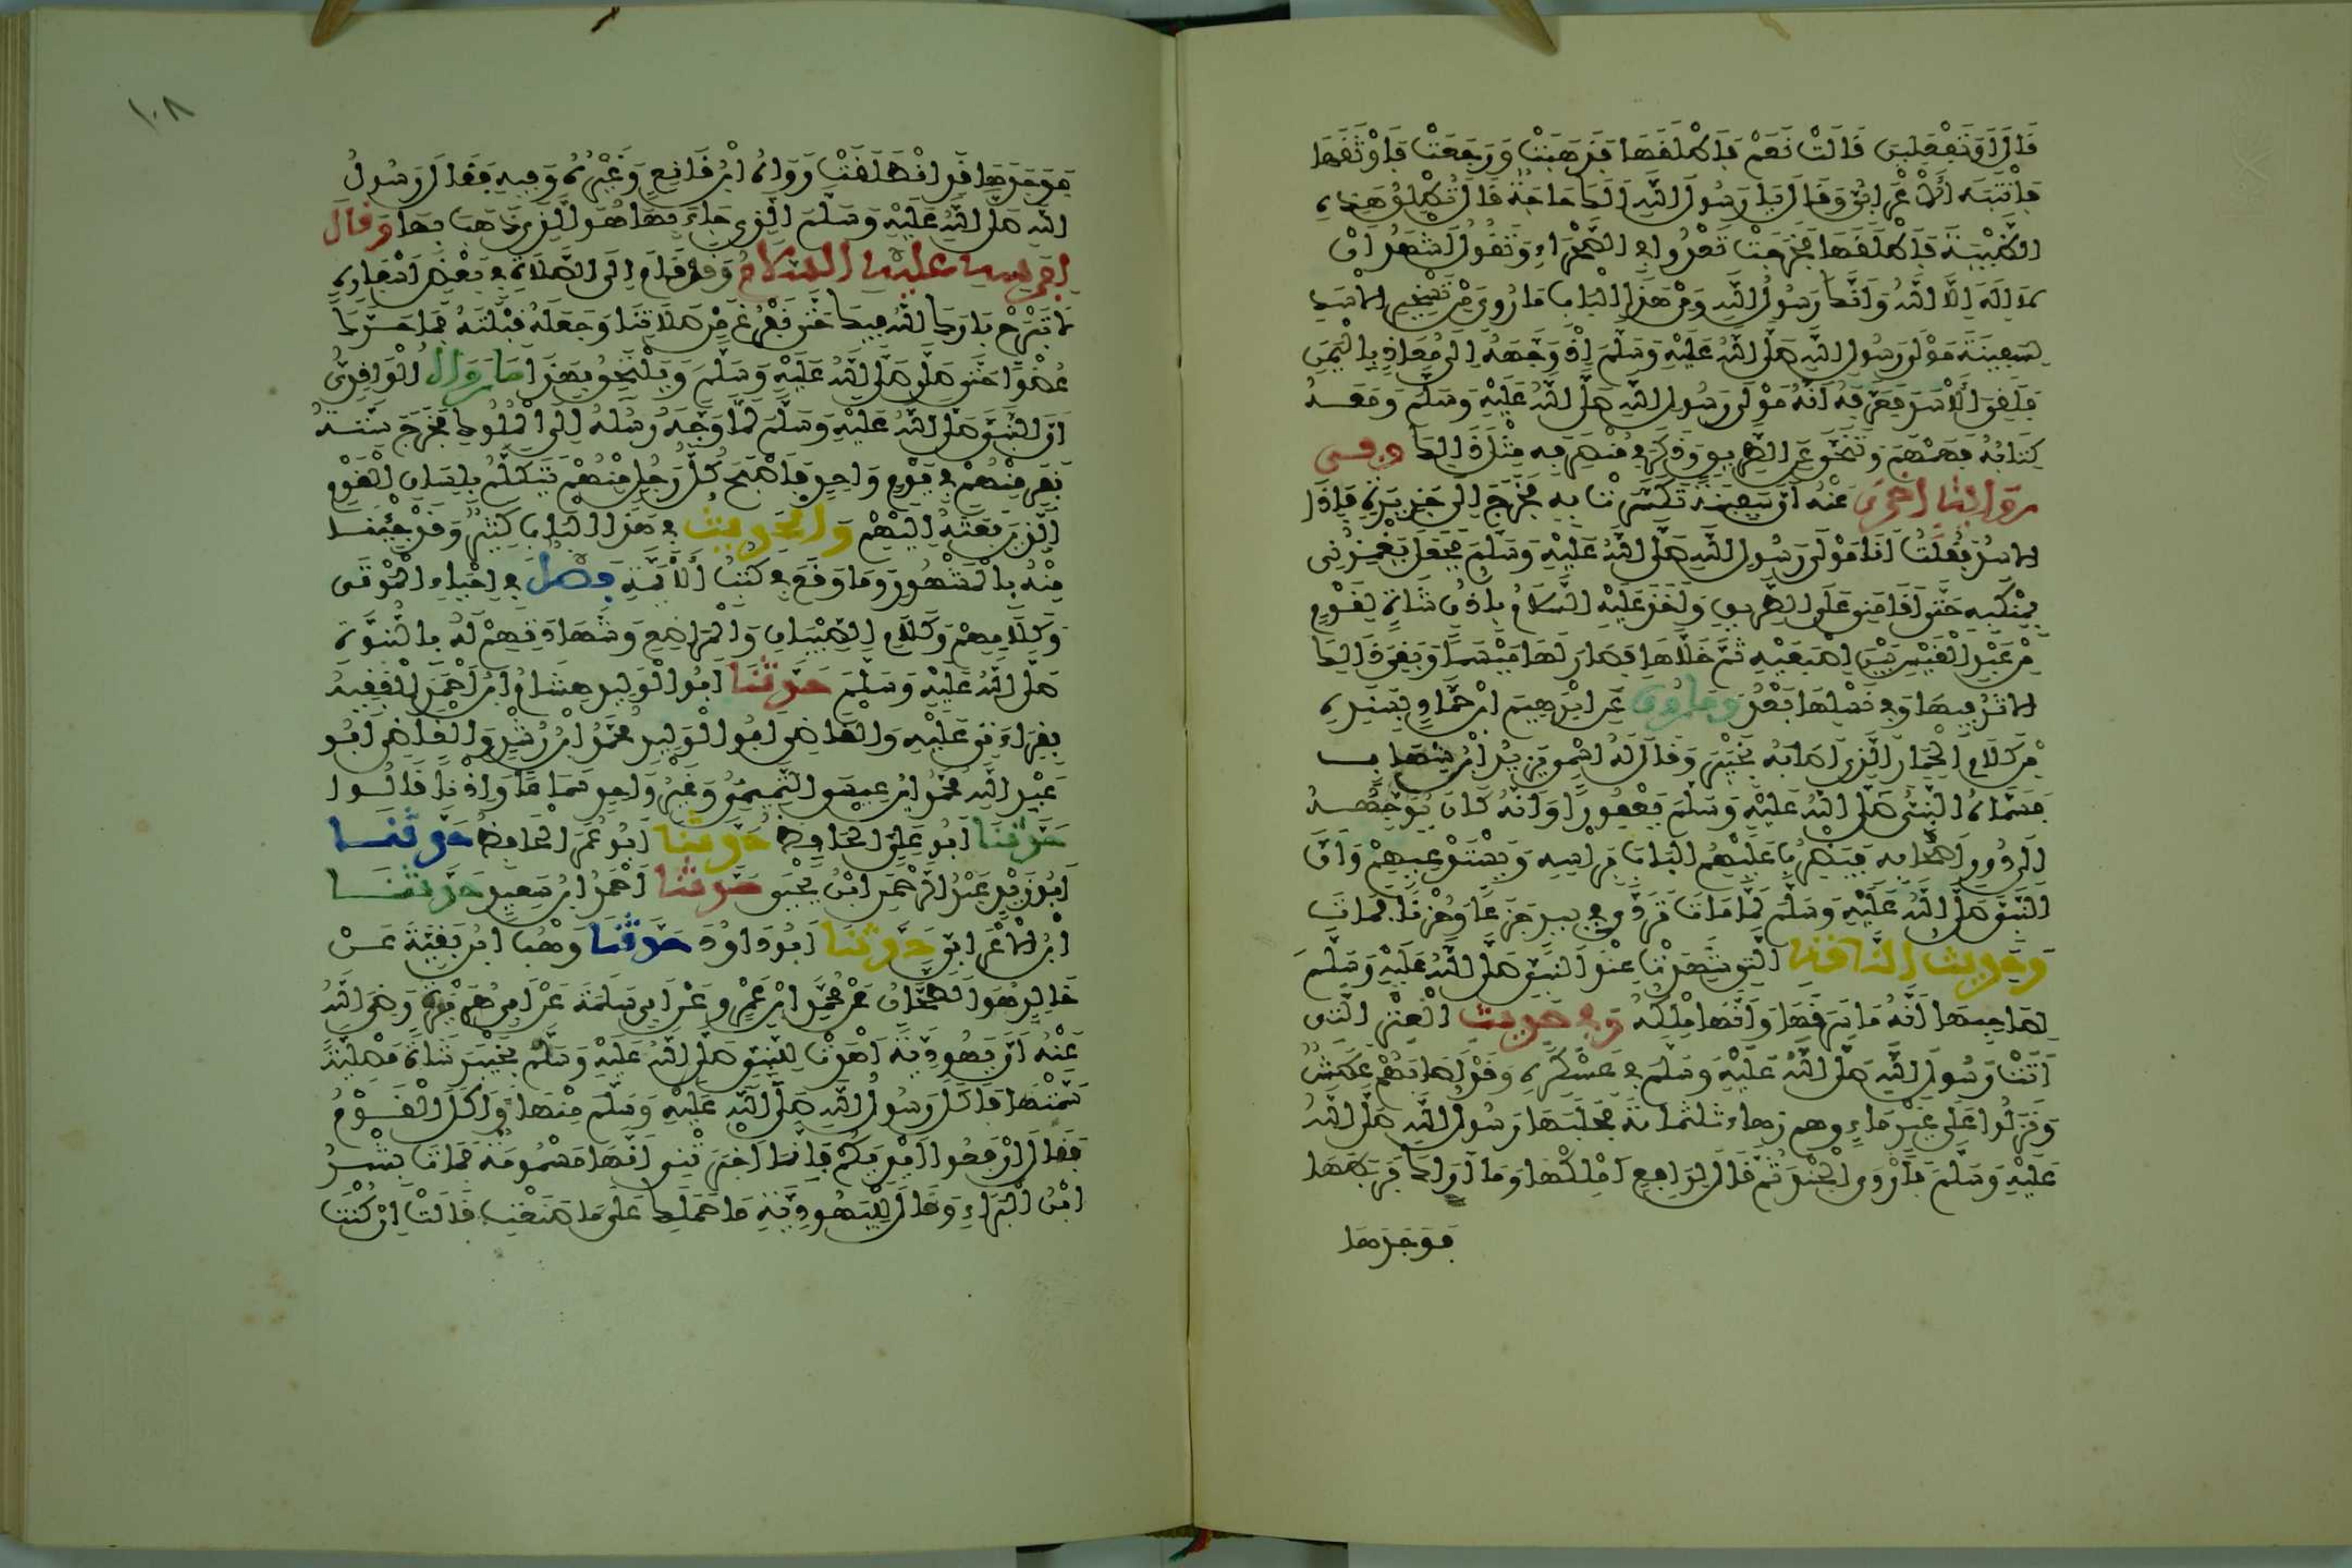 قَالَ أَوَتَفْعَلِينَ قَالَتْ نَعَمْ فَأَطْلَقَهَا فَذَهَبَتْ وَرَجَعَتْ فَأَوْثَقَهَا
فَانْتَبَهَ الْأَعْرَابِيُّ وَقَالَ يَا رَسُولَ اللَّهِ أَلَكَ حَاجَةٌ قَالَ تُطْلِقُ هَذِهِ
الظَّبْيَةَ فَأَطْلَقَهَا فَخَرَجَتْ تَعْدُوا فِي الصَّحْرَاءِ وَتَقُولُ أَشْهَدُ أَنْ
لَا إِلَهَ إِلَّا اللَّهُ وَأَنَّكَ رَسُولُ اللَّهِ وَمِنْ هَذَا الْبَابِ مَا رُوِيَ مِنْ تَسْخِيرِ الْأَسَدِ
لِسَفِينَةَ مَوْلَى رَسُولِ اللَّهِ صَلَّى اللَّهُ عَلَيْهِ وَسَلَّمَ إِذْ وَجَّهَهُ إِلَى مُعَاذٍ بِالْيَمَنِ
فَلَقِيَ الْأَسَدَ فَعَرَّفَهُ أَنَّهُ مَوْلَى رَسُولِ اللَّهِ صَلَّى اللَّهُ عَلَيْهِ وَسَلَّمَ وَمَعَهُ
كِتَابُهُ فَهَمْهَمَ وَتَنَحَّى عَنِ الطَّرِيقِ وَذَكَرَ فِي مُنْصَرَفِهِ مِثْلَ ذَلِكَ وَفِي
رِوَايَةٍ أُخْرَى عَنْهُ أَنَّ سَفِينَةً تَكَسَّرَتْ بِهِ فَخَرَجَ إِلَى جَزِيرَةٍ فَإِذَا
الْأَسَدُ فَقُلْتُ أَنَا مَوْلَى رَسُولِ اللَّهِ صَلَّى اللَّهُ عَلَيْهِ وَسَلَّمَ فَجَعَلَ يَغْمِزُنِي
بِمَنْكِبِهِ حَتَّى أَقَامَنِي عَلَى الطَّرِيقِ وَأَخَذَ عَلَيْهِ السَّلَامُ بِأُذُنِ شَاةٍ لِقَوْمٍ
مِنْ عَبْدِ الْقَيْسِ بَيْنَ إِصْبَعَيْهِ ثُمَّ خَلَّاهَا فَصَارَ لَهَا مِيسَمًا وَبَقِيَ ذَلِكَ
الْأَثَرُ فِيهَا وَفِي نَسْلِهَا بَعْدُ وَمَا رُوِيَ عَنْ إِبْرَاهِيمَ بْنِ حَمَّادٍ بِسَنَدِهِ
مِنْ كَلَامِ الْحِمَارِ الَّذِي أَصَابَهُ بِخَيْبَرَ وَقَالَ لَهُ اسْمِي يَزِيدُ ابْنُ شِهَابٍ
فَسَمَّاهُ النَّبِيُّ صَلَّى اللَّهُ عَلَيْهِ وَسَلَّمَ يَعْفُورًا وَأَنَّهُ كَانَ يُوَجِّهُهُ
إِلَى دُورِ أَصْحَابِهِ فَيَضْرِبُ عَلَيْهِمُ الْبَابَ بِرَأْسِهِ وَيَسْتَدْعِيهِمْ وَأَنَّ
النَّبِيَّ صَلَّى اللَّهُ عَلَيْهِ وَسَلَّمَ لَمَّا مَاتَ تَرَدَّى فِي بِيرٍ جَزَعًا وَحُزْنًا فَمَاتَ
وَحَدِيثُ النَّاقَةِ الَّتِي شَهِدَتْ عِنْدَ النَّبِيِّ صَلَّى اللَّهُ عَلَيْهِ وَسَلَّمَ
لِصَاحِبِهَا أَنَّهُ مَا سَرَقَهَا وَأَنَّهَا مِلْكُهُ وَفِي حَدِيثِ الْعَنْزِ الَّتِي
أَتَتْ رَسُولَ اللَّهِ صَلَّى اللَّهُ عَلَيْهِ وَسَلَّمَ فِي عَسْكَرِهِ وَقَدْ أَصَابَهُمْ عَطَشٌ
وَنَزَلُوا عَلَى غَيْرِ مَاءٍ وَهُمْ زُهَاءُ ثَلَثِمِائَةٍ فَحَلَبَهَا رَسُولُ اللَّهِ صَلَّى اللَّهُ
عَلَيْهِ وَسَلَّمَ فَأَرْوَى الْجُنْدَ ثُمَّ قَالَ لِرَافِعٍ امْلِكْهَا وَمَا أَرَاكَ فَرَبَطَهَا
فَوَجَدَهَا
١٠٨
فَوَجَدَهَا قَدِ انْطَلَقَتْ رَوَاهُ ابْنُ قَانِعٍ وَغَيْرُهُ وَفِيهِ فَقَالَ رَسُولُ
اللَّهِ صَلَّى اللَّهُ عَلَيْهِ وَسَلَّمَ الَّذِي جَاءَ بِهَا هُوَ الَّذِي ذَهَبَ بِهَا وَقَالَ
لِفَرَسِهِ عَلَيْهِ السَّلَامُ وَقَدْ قَامَ إِلَى الصَّلَاةِ فِي بَعْضِ أَسْفَارِهِ
لَا تَبْرَحْ بَارَكَ اللَّهُ فِيكَ حَتَّى نَفْرُغَ مِنْ صَلَاتِنَا وَجَعَلَهُ قِبْلَتَهُ فَمَا حَرَّكَ
عُضْوًا حَتَّى صَلَّى صَلَّى اللَّهُ عَلَيْهِ وَسَلَّمَ وَيَلْتَحِقُ بِهَذَا مَا رَوَاهُ الْوَاقِدِيُّ
أَنَّ النَّبِيَّ صَلَّى اللَّهُ عَلَيْهِ وَسَلَّمَ لَمَّا وَجَّهَ رُسُلَهُ إِلَى الْمُلُوكِ فَخَرَجَ سِتَّةُ
نَفَرٍ مِنْهُمْ فِي يَوْمٍ وَاحِدٍ فَأَصْبَحَ كُلُّ رَجُلٍ مِنْهُمْ يَتَكَلَّمُ بِلِسَانِ الْقَوْمِ
الَّذِينَ بَعَثَهُ إِلَيْهِمْ وَالْحَدِيثُ فِي هَذَا الْبَابِ كَثِيرٌ وَقَدْ جِئْنَا
مِنْهُ بِالْمَشْهُورِ وَمَا وَقَعَ فِي كُتُبِ الْأَئِمَّةِ فَصْلٌ فِي إِحْيَاءِ الْمَوْتَى
وَكَلَامِهِمْ وَكَلَامِ الصِّبْيَانِ وَالْمَرَاضِعِ وَشَهَادَتِهِمْ لَهُ بِالنُّبُوَّةِ
صَلَّى اللَّهُ عَلَيْهِ وَسَلَّمَ حَدَّثَنَا أَبُو الْوَلِيدِ هِشَامُ ابْنُ أَحْمَدَ الْفَقِيهُ
بِقِرَاءَتِي عَلَيْهِ وَالْقَاضِي أَبُو الْوَلِيدِ مُحَمَّدُ ابْنُ رُشْدٍ وَالْقَاضِي أَبُو
عَبْدِ اللَّهِ مُحَمَّدُ ابْنُ عِيسَى التَّمِيمِيُّ وَغَيْرُ وَاحِدٍ سَمَاعًا وَإِذْنًا قَالُوا
حَدَّثَنَا أَبُو عَلِيٍّ الْحَافِظُ حَدَّثَنَا أَبُو عُمَرَ الْحَافِظُ حَدَّثَنَا
أَبُو زَيْدٍ عَبْدُ الرَّحْمَنِ ابْنُ يَحْيَى حَدَّثَنَا أَحْمَدُ ابْنُ سَعِيدٍ حَدَّثَنَا
ابْنُ الْأَعْرَابِيِّ حَدَّثَنَا أَبُو دَاوُدَ حَدَّثَنَا وَهْبُ ابْنُ بَقِيَّةَ عَنْ
خَالِدٍ هُوَ الطَّحَّانُ عَنْ مُحَمَّدِ ابْنِ عَمْرٍو عَنْ أَبِي سَلَمَةَ عَنْ أَبِي هُرَيْرَةَ رَضِيَ اللَّهُ
عَنْهُ أَنَّ يَهُودِيَّةً أَهْدَتْ لِلنَّبِيِّ صَلَّى اللَّهُ عَلَيْهِ وَسَلَّمَ بِخَيْبَرَ شَاةً مَصْلِيَّةً
سَمَّتْهَا فَأَكَلَ رَسُولُ اللَّهِ صَلَّى اللَّهُ عَلَيْهِ وَسَلَّمَ مِنْهَا وَأَكَلَ الْقَوْمُ
فَقَالَ ارْفَعُوا أَيْدِيَكُمْ فَإِنَّهَا أَخْبَرَتْنِي أَنَّهَا مَسْمُومَةٌ فَمَاتَ بِشْرُ
ابْنُ الْبَرَاءِ وَقَالَ لِلْيَهُودِيَّةِ مَا حَمَلَكِ عَلَى مَا صَنَعْتِ قَالَتْ إِنْ كُنْتَ